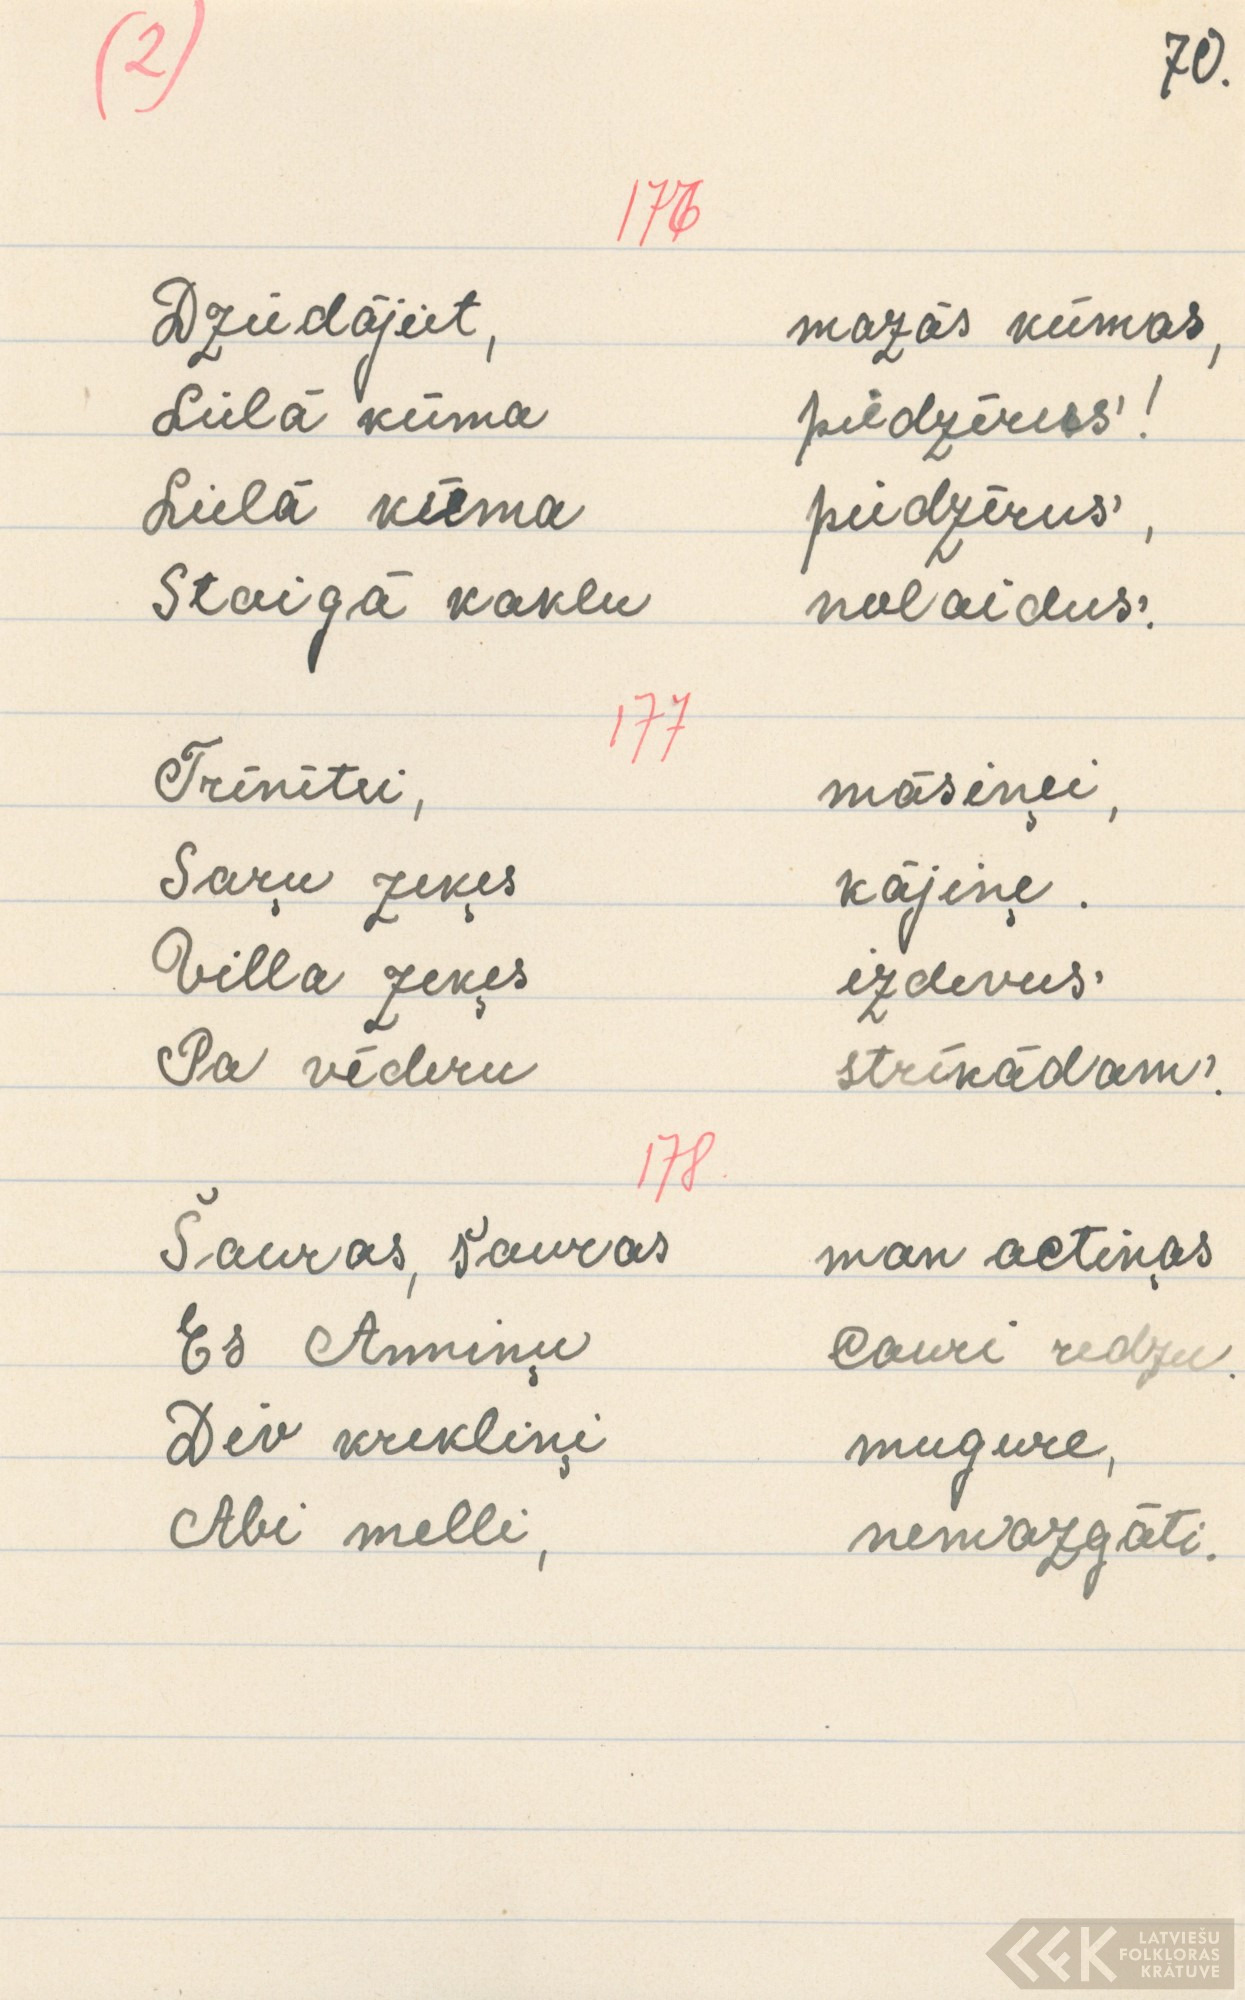 (2)
70.
176
Dziedājiet, mazās kūmas,
Lielā kūma piedzērus'!
Lielā kūma piedzērus',
Staigā kaklu nolaidus'.
177
Trīnītei, māsiņei,
Saŗu zeķes kājiņe.
Villa zeķes izdevus'
Pa vēderu strīkādam'.
178
Šauras, šauras man actiņas
Es Anniņu cauri redzu.
Div krekliņi mugure,
Abi melli, nemazgāti.
LATVIEŠU
FOLKLORAS
KRĀTUVE